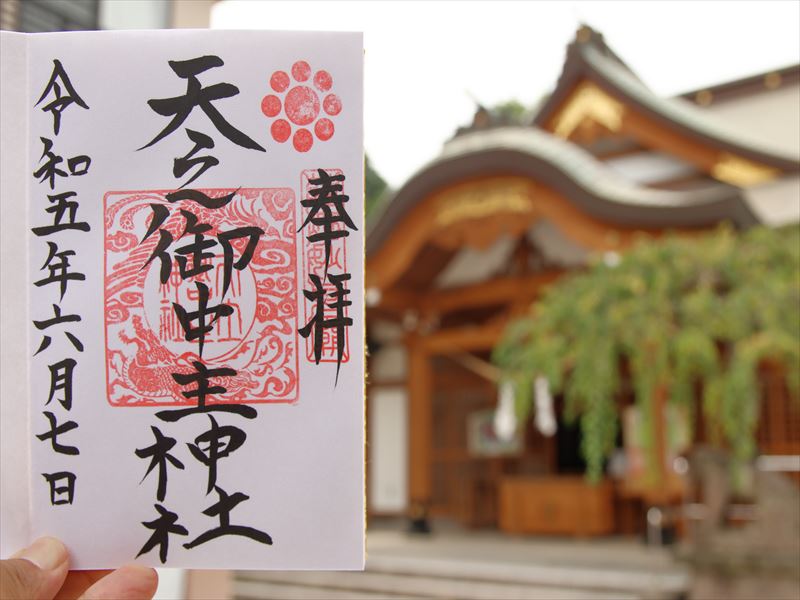 奉拝
天之御中主神社
令和五年六月七日